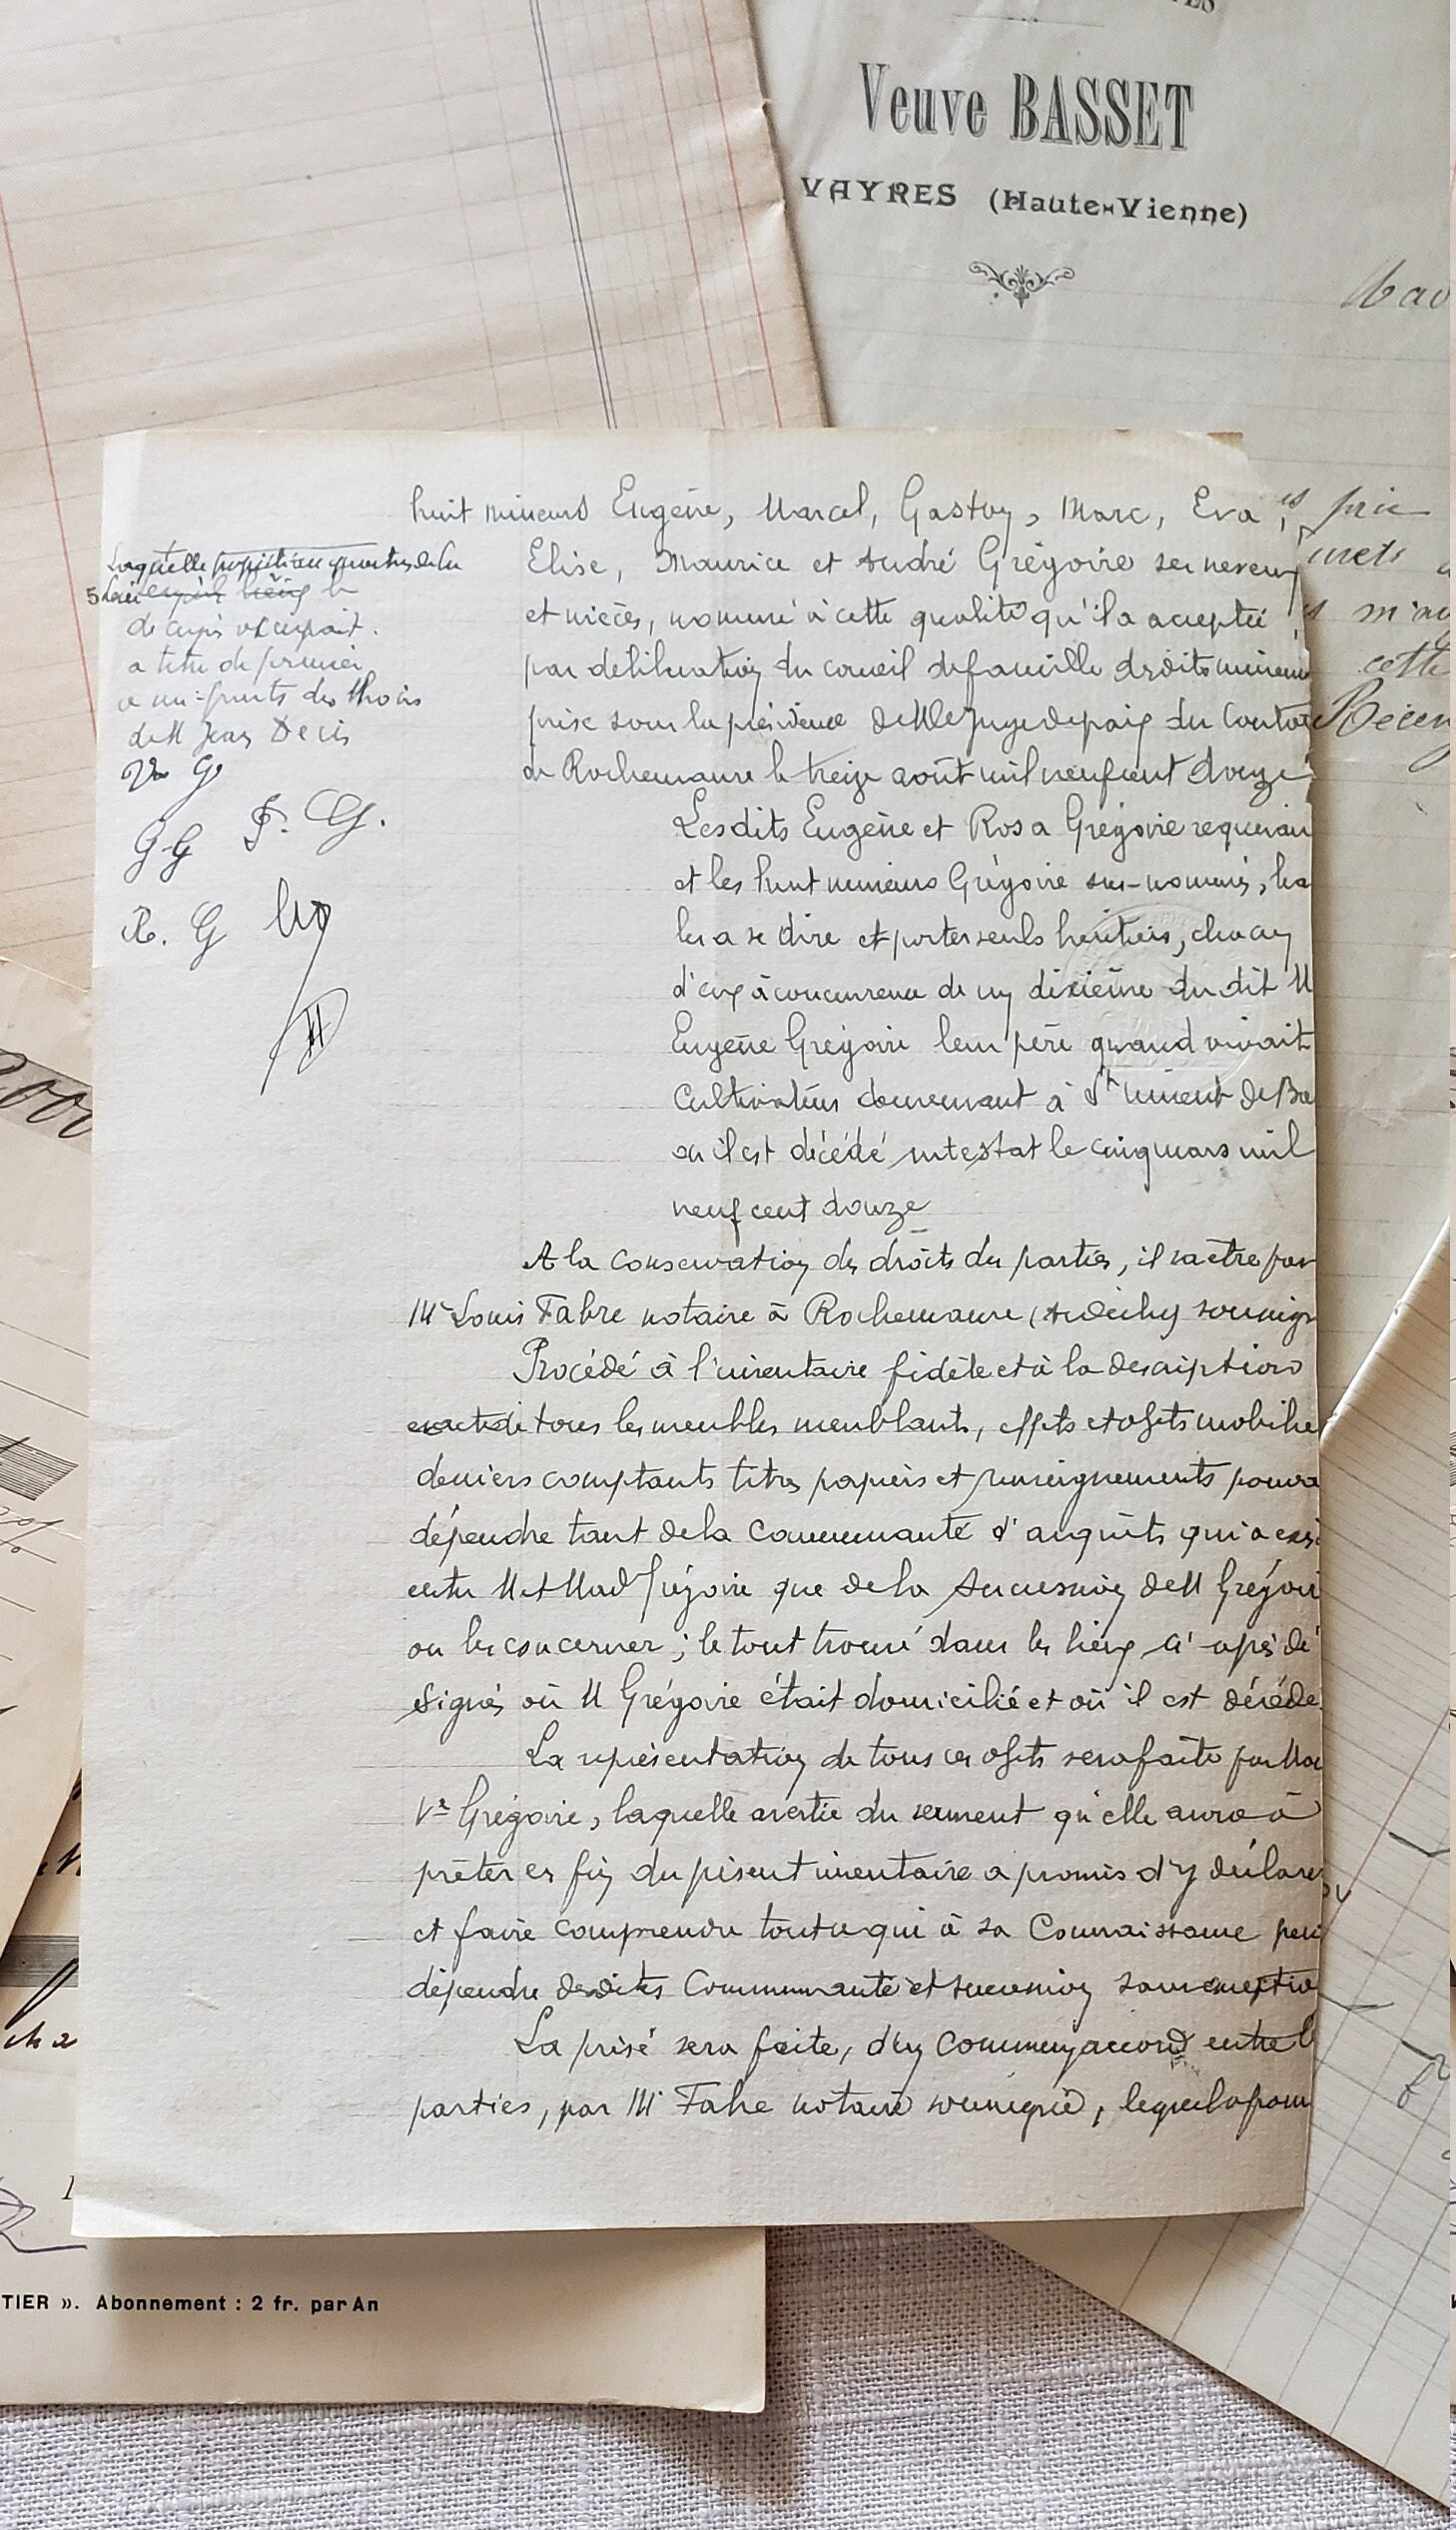 Veuve BASSET
VAYRES (Haute-Vienne)
prie
cette
huit mineurs Eugène, Marcel, Gaston, Marc, Eva,
Elise, Maurice et André Grégoire ses neveux
et nièces, nommé à cette qualité qu'il a acceptée
par délibération du conseil de famille desdits mineurs
prise sous la présidence de M le Juge de paix du Canton
de Rochemaure le treize août mil neuf cent douze
Les dits Eugène et Rosa Grégoire requéran
et les huit mineurs Grégoire sus-nommés, ha
les a se dire et porter seuls héritiers, chacun
d'eux à concurrence de un dixième du dit M
Eugène Grégoire leur père quand vivait
Cultivateur demeurant à St Vincent de Ba
où il est décédé intestat le cinq mars mil
neuf cent douze
A la conservation des droits des parties, il va être par
Me Louis Fabre notaire à Rochemaure (Ardèche) soussign
Procédé à l'inventaire fidèle et à la description
exacte de tous les meubles meublants, effets et objets mobilie
deniers comptants titres papiers et renseignements pouva
dépendre tant de la Communauté d'acquêts qui a exis
entre M et Mad Grégoire que de la Succession de M Grégoire
ou les concerner ; le tout trouvé dans les lieux ci-après dé
signés où M Grégoire était domicilié et où il est décédé
La représentation de tous ces objets sera faite par Mad
Ve Grégoire, laquelle avertie du serment qu'elle aura à
prêter en fin du présent inventaire a promis d'y déclarer
et faire comprendre tout ce qui à sa Connaissance peu
dépendre desdites Communauté et succession sans exceptio
La prisé sera faite, d'un commun accord entre l
parties, par Me Fabre notaire soussigné, lequel a prom
Laquelle
de
occupait.
a titre de fermier
a mi-fruits des
de M Jean
Ve G
G G F. G.
R. G
TIER ». Abonnement : 2 fr. par An